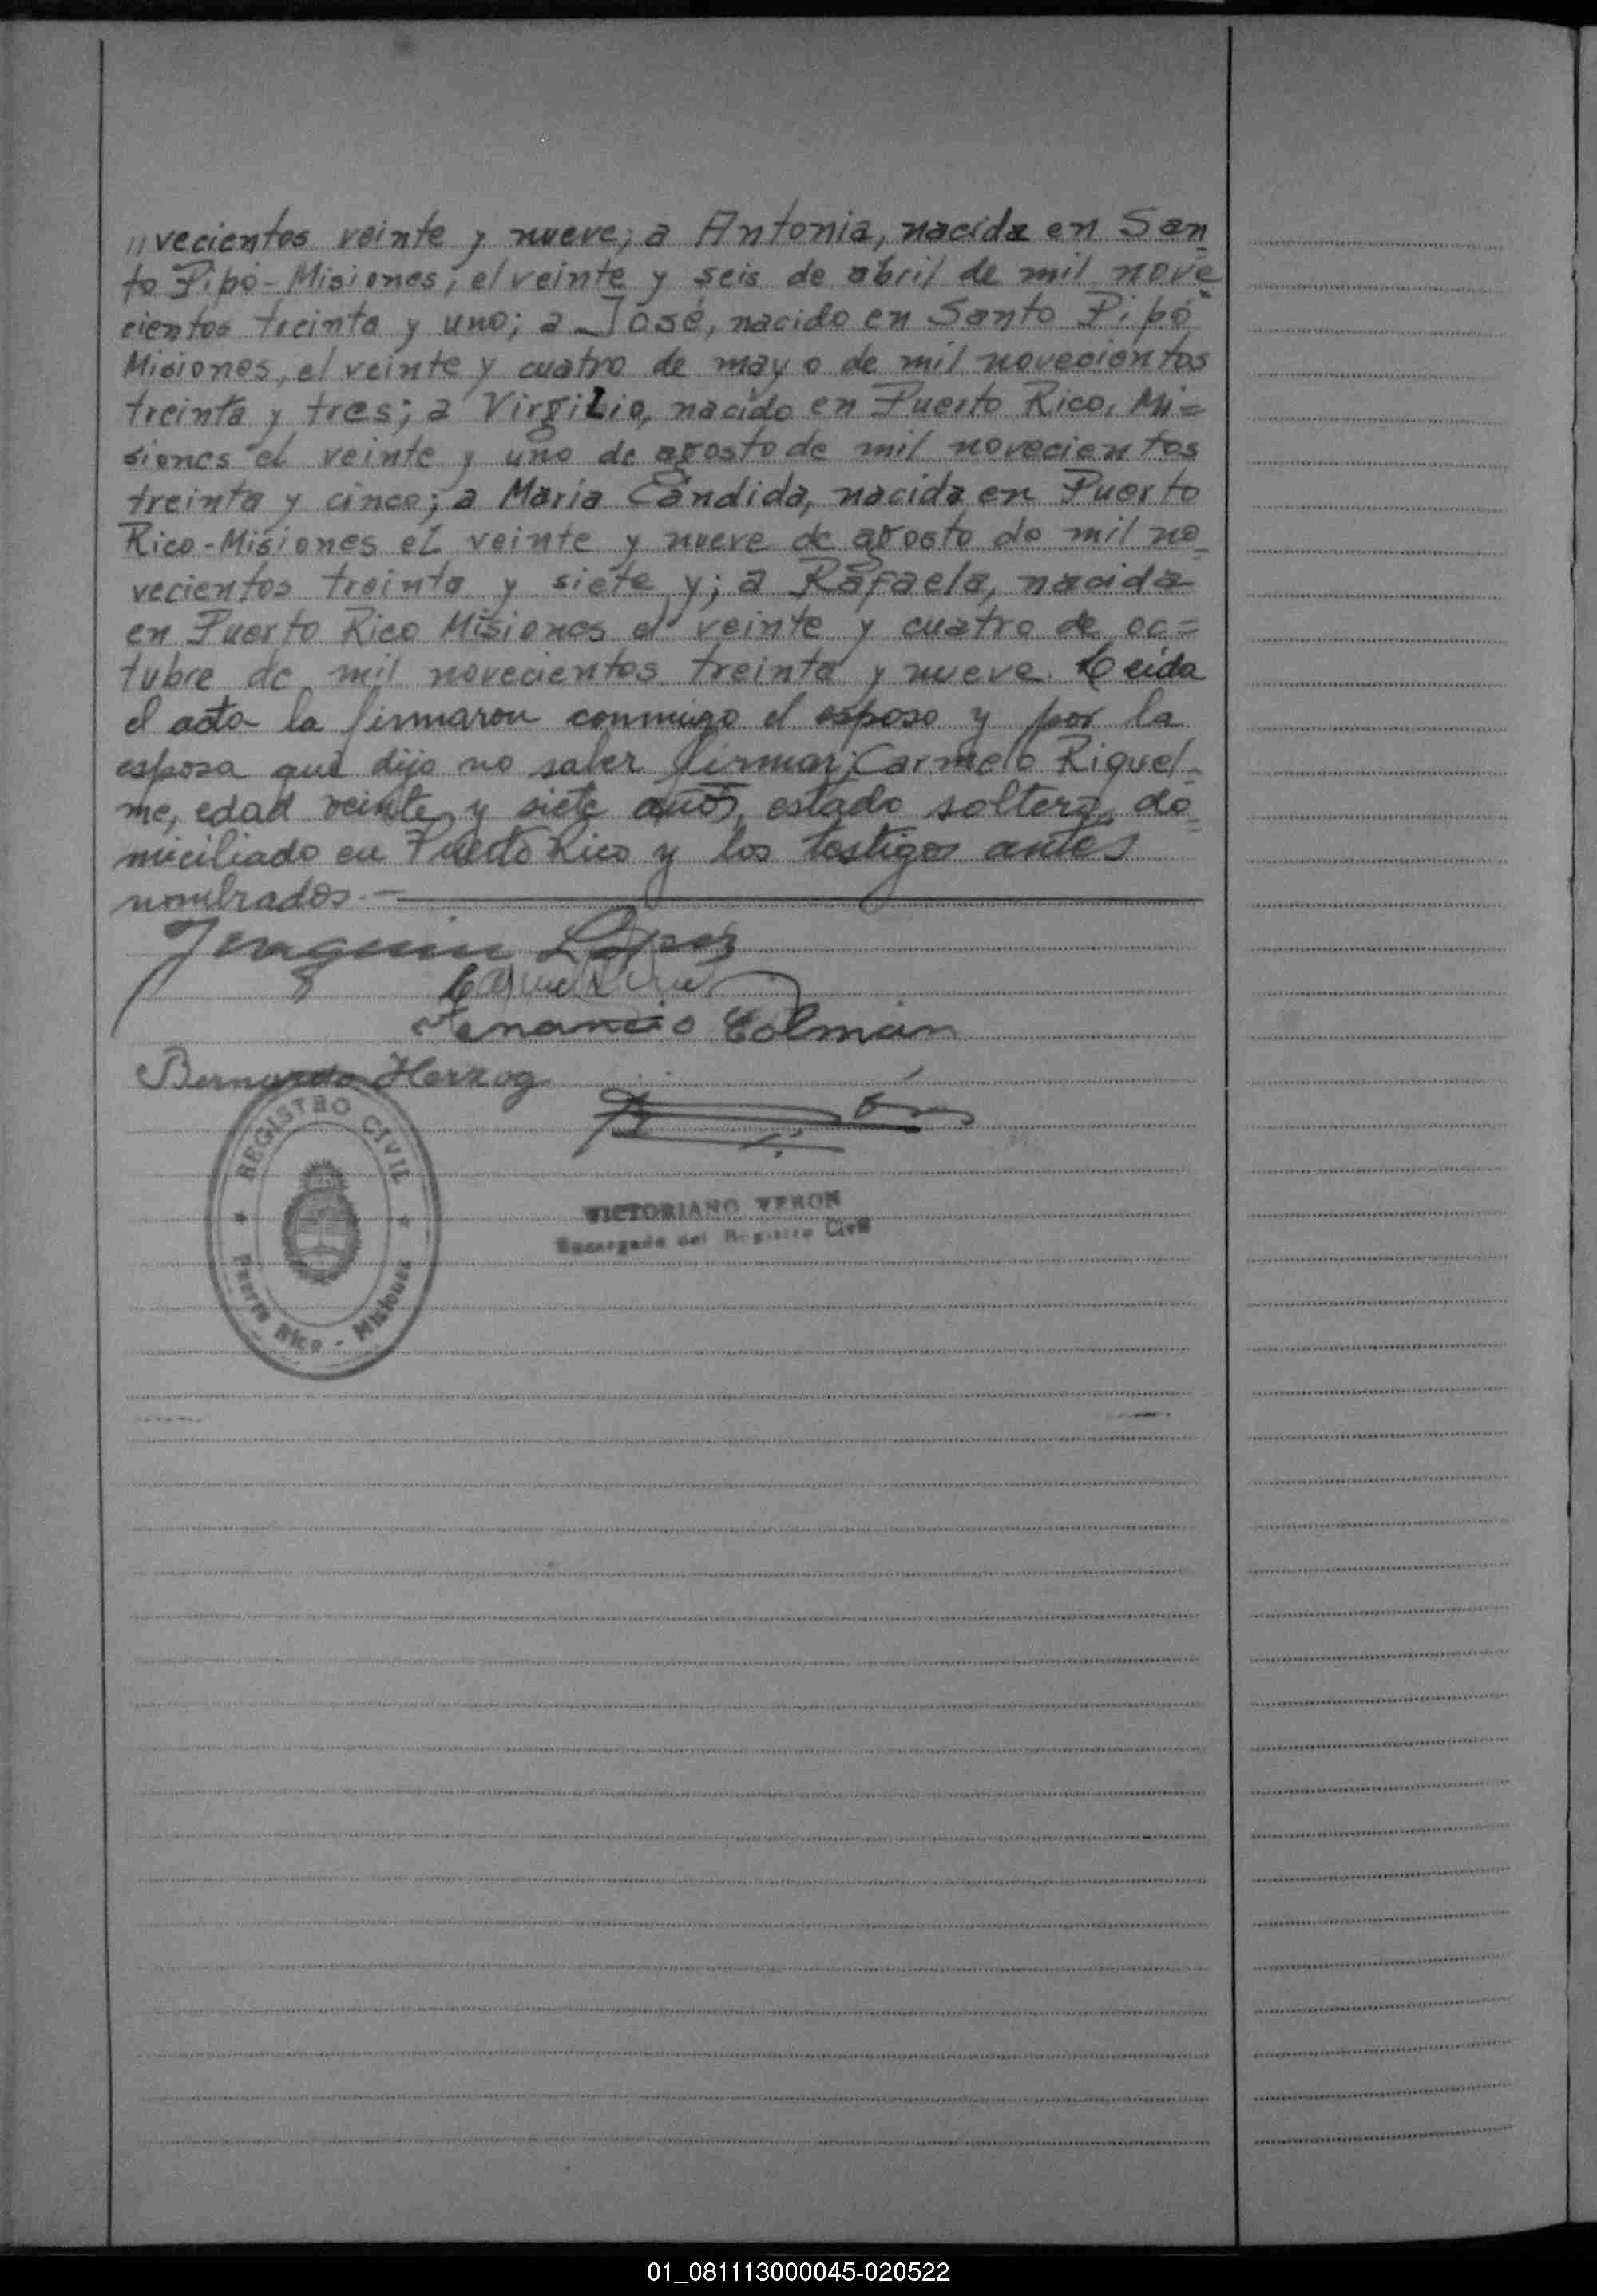 "vecientos veinte y nueve; a Antonia, nacida en San=
to Pipó-Misiones, el veinte y seis de abril de mil nove=
cientos treinta y uno; a José, nacido en Santo Pipó
Misiones, el veinte y cuatro de mayo de mil novecientos
treinta y tres; a Virgilio, nacido en Puerto Rico, Mi=
siones el veinte y uno de agosto de mil novecientos
treinta y cinco; a María Cándida, nacida en Puerto
Rico-Misiones el veinte y nueve de agosto de mil no=
vecientos treinta y siete y; a Rafaela, nacida
en Puerto Rico Misiones el veinte y cuatro de oc=
tubre de mil novecientos treinta y nueve. Leída
el acta la firmaron conmigo el esposo y por la
esposa que dijo no saber firmar; Carmelo Riquel=
me, edad veinte y siete años, estado soltero, do=
miciliado en Puerto Rico y los testigos antes
nombrados.—
Joaquin López
Venancio Colman
Bernardo Herzog
REGISTRO CIVIL
Puerto Rico - Misiones
VICTORIANO VERON
Encargado del Registro Civil
01_081113000045-020522